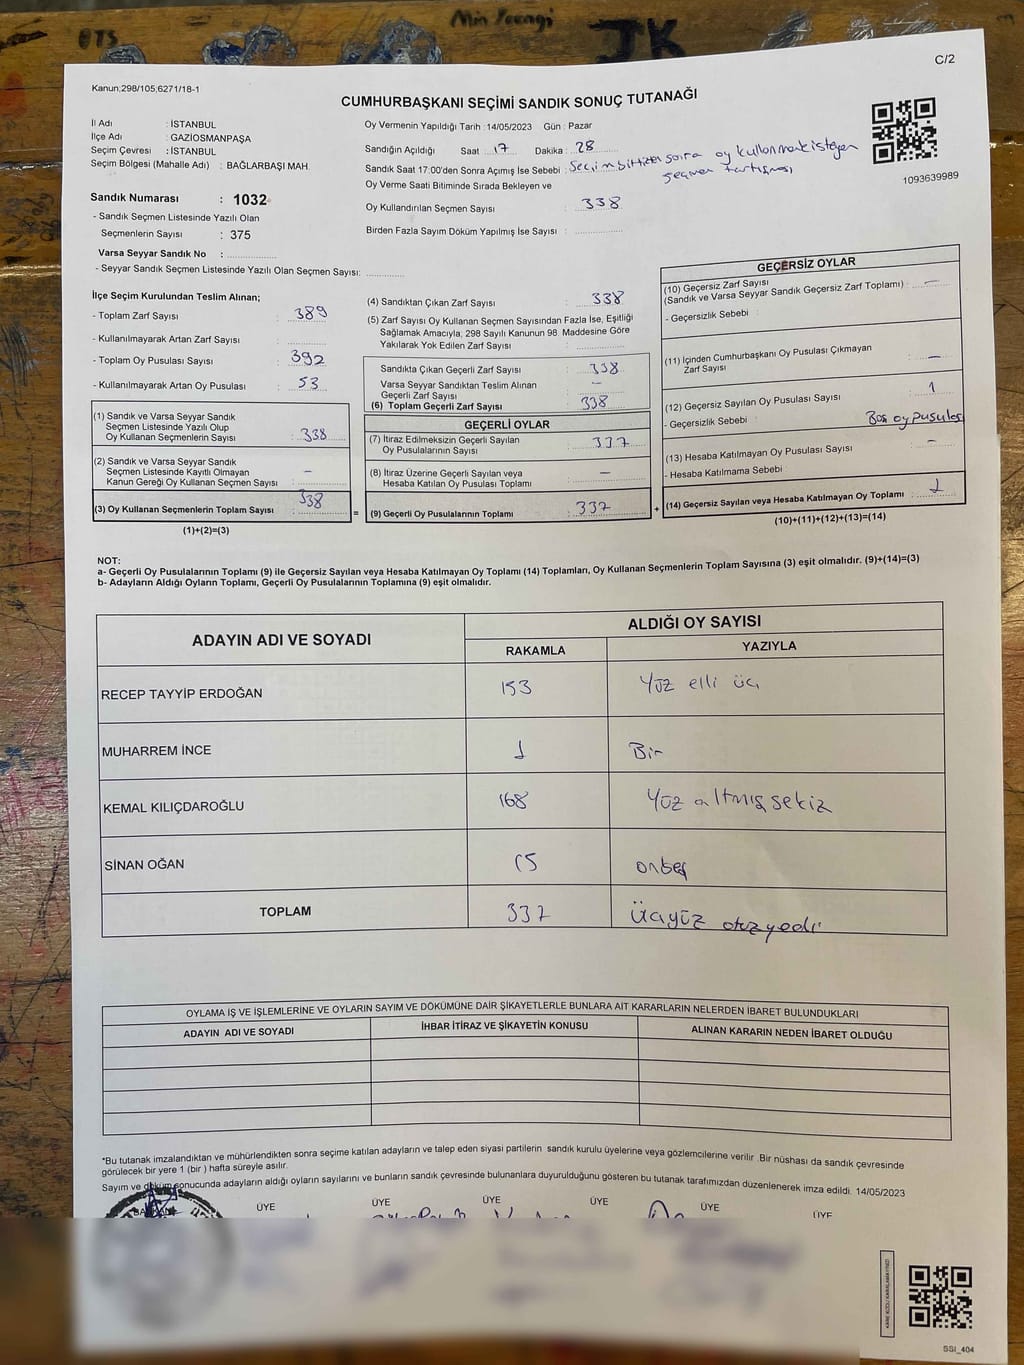 BTS
Min Yoongi
JK
C/2
Kanun;298/105;6271/18-1
CUMHURBAŞKANI SEÇİMİ SANDIK SONUÇ TUTANAĞI
İl Adı : İSTANBUL
İlçe Adı : GAZİOSMANPAŞA
Seçim Çevresi : İSTANBUL
Seçim Bölgesi (Mahalle Adı) : BAĞLARBAŞI MAH.
Oy Vermenin Yapıldığı Tarih : 14/05/2023 Gün : Pazar
Sandığın Açıldığı Saat 17 Dakika : 28
Sandık Saat 17:00'den Sonra Açımış İse Sebebi : Seçim bittikten sonra oy kullanmak isteyen
seçmen tartışması
1093639989
Oy Verme Saati Bitiminde Sırada Bekleyen ve
Oy Kullandırılan Seçmen Sayısı : 338
Birden Fazla Sayım Döküm Yapılmış İse Sayısı :
Sandık Numarası : 1032
- Sandık Seçmen Listesinde Yazılı Olan
Seçmenlerin Sayısı : 375
Varsa Seyyar Sandık No :
- Seyyar Sandık Seçmen Listesinde Yazılı Olan Seçmen Sayısı:
İlçe Seçim Kurulundan Teslim Alınan;
- Toplam Zarf Sayısı : 389
- Kullanılmayarak Artan Zarf Sayısı :
- Toplam Oy Pusulası Sayısı : 392
- Kullanılmayarak Artan Oy Pusulası : 53
(1) Sandık ve Varsa Seyyar Sandık
Seçmen Listesinde Yazılı Olup
Oy Kullanan Seçmenlerin Sayısı : 338
(2) Sandık ve Varsa Seyyar Sandık
Seçmen Listesinde Kayıtlı Olmayan
Kanun Gereği Oy Kullanan Seçmen Sayısı : –
(3) Oy Kullanan Seçmenlerin Toplam Sayısı : 338
(1)+(2)=(3)
(4) Sandıktan Çıkan Zarf Sayısı : 338
(5) Zarf Sayısı Oy Kullanan Seçmen Sayısından Fazla İse, Eşitliği
Sağlamak Amacıyla; 298 Sayılı Kanunun 98. Maddesine Göre
Yakılarak Yok Edilen Zarf Sayısı :
Sandıkta Çıkan Geçerli Zarf Sayısı : 338
Varsa Seyyar Sandıktan Teslim Alınan
Geçerli Zarf Sayısı : –
(6) Toplam Geçerli Zarf Sayısı : 338
=
GEÇERLİ OYLAR
(7) İtiraz Edilmeksizin Geçerli Sayılan
Oy Pusulalarının Sayısı : 337
(8) İtiraz Üzerine Geçerli Sayılan veya
Hesaba Katılan Oy Pusulası Toplamı : –
(9) Geçerli Oy Pusulalarının Toplamı : 337
+
GEÇERSİZ OYLAR
(10) Geçersiz Zarf Sayısı
(Sandık ve Varsa Seyyar Sandık Geçersiz Zarf Toplamı) : –
- Geçersizlik Sebebi :
(11) İçinden Cumhurbaşkanı Oy Pusulası Çıkmayan
Zarf Sayısı : –
(12) Geçersiz Sayılan Oy Pusulası Sayısı : 1
- Geçersizlik Sebebi : Boş oy pusulası
(13) Hesaba Katılmayan Oy Pusulası Sayısı : –
- Hesaba Katılmama Sebebi
(14) Geçersiz Sayılan veya Hesaba Katılmayan Oy Toplamı : 1
(10)+(11)+(12)+(13)=(14)
NOT:
a- Geçerli Oy Pusulalarının Toplamı (9) ile Geçersiz Sayılan veya Hesaba Katılmayan Oy Toplamı (14) Toplamları, Oy Kullanan Seçmenlerin Toplam Sayısına (3) eşit olmalıdır. (9)+(14)=(3)
b- Adayların Aldığı Oyların Toplamı, Geçerli Oy Pusulalarının Toplamına (9) eşit olmalıdır.
ADAYIN ADI VE SOYADI ALDIĞI OY SAYISI
RAKAMLA YAZIYLA
RECEP TAYYİP ERDOĞAN 153 Yüz elli üç
MUHARREM İNCE 1 Bir
KEMAL KILIÇDAROĞLU 168 Yüz altmış sekiz
SİNAN OĞAN 15 onbeş
TOPLAM 337 Üçyüz otuzyedi
OYLAMA İŞ VE İŞLEMLERİNE VE OYLARIN SAYIM VE DÖKÜMÜNE DAİR ŞİKAYETLERLE BUNLARA AİT KARARLARIN NELERDEN İBARET BULUNDUKLARI
ADAYIN ADI VE SOYADI İHBAR İTİRAZ VE ŞİKAYETİN KONUSU ALINAN KARARIN NEDEN İBARET OLDUĞU
*Bu tutanak imzalandıktan ve mühürlendikten sonra seçime katılan adayların ve talep eden siyasi partilerin sandık kurulu üyelerine veya gözlemcilerine verilir .Bir nüshası da sandık çevresinde
görülecek bir yere 1 (bir ) hafta süreyle asılır.
Sayım ve döküm sonucunda adayların aldığı oyların sayılarını ve bunların sandık çevresinde bulunanlara duyurulduğunu gösteren bu tutanak tarafımızdan düzenlenerek imza edildi. 14/05/2023
BAŞKAN ÜYE ÜYE ÜYE ÜYE ÜYE ÜYE
SSI_404